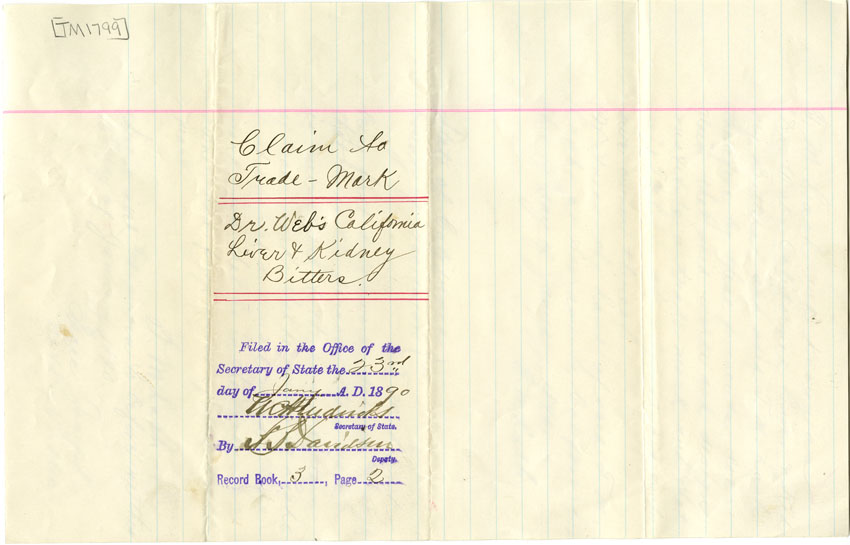 [TM1799]
Claim to
Trade-Mark
Dr. Web's California
Liver & Kidney
Bitters.
Filed in the Office of the
Secretary of State the 23rd
day of Jany A. D. 1890
W C Hendricks
Secretary of State.
By Davidson
Deputy.
Record Book, 3, Page 2